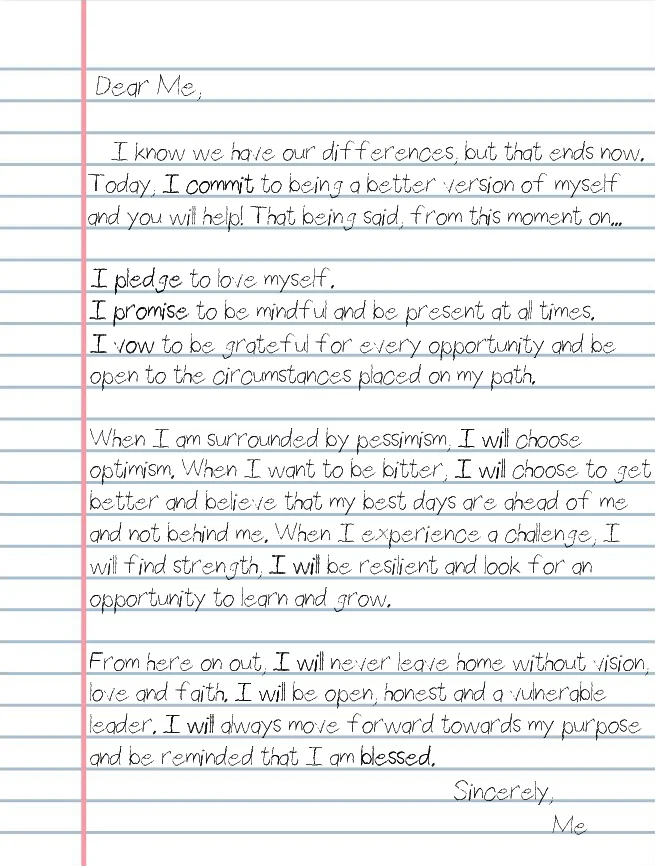 Dear Me,
I know we have our differences, but that ends now.
Today, I commit to being a better version of myself
and you will help! That being said, from this moment on...
I pledge to love myself.
I promise to be mindful and be present at all times.
I vow to be grateful for every opportunity and be
open to the circumstances placed on my path.
When I am surrounded by pessimism, I will choose
optimism. When I want to be bitter, I will choose to get
better and believe that my best days are ahead of me
and not behind me. When I experience a challenge, I
will find strength, I will be resilient and look for an
opportunity to learn and grow.
From here on out, I will never leave home without vision,
love and faith. I will be open, honest and a vulnerable
leader. I will always move forward towards my purpose
and be reminded that I am blessed.
Sincerely,
Me